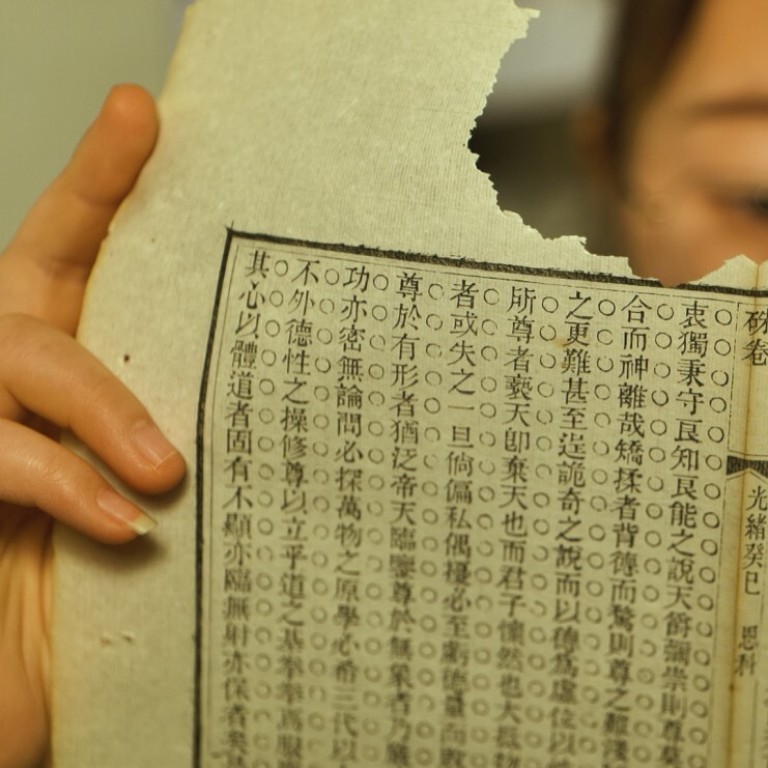 硃卷
光緒癸巳 恩科
衷獨秉守良知良能之說天爵彌崇則尊
合而神離哉矯揉者背德而騖則尊之難
之更難甚至逞詭奇之說而以德為虛位以
所尊者褻天卽棄天也而君子懍然也大
者或失之一旦倘偏私偶擾必至虧德量而
尊於有形者猶泛帝天臨鑒尊於無象者乃
功亦密無論問必探萬物之原學必希三代以
不外德性之操修尊以立乎道之基拳拳為服
其心以體道者固有不顯亦臨無射亦保者矣